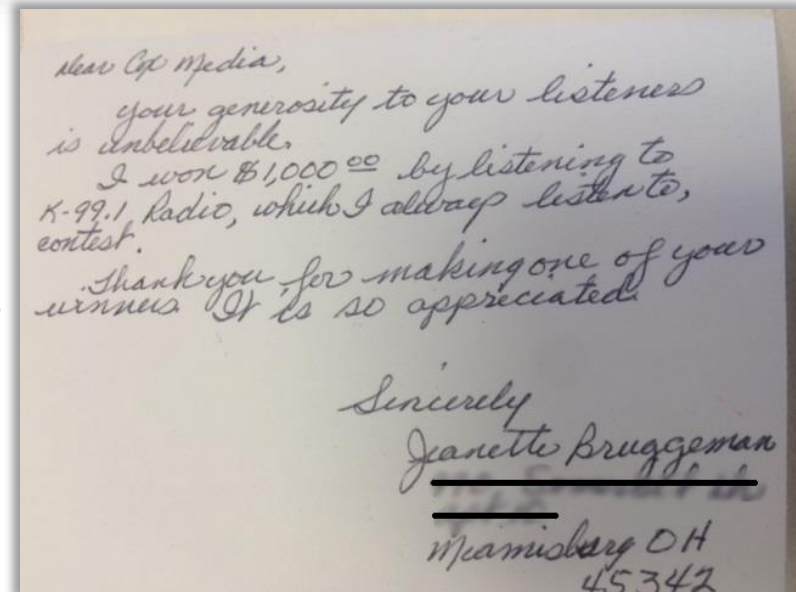 Dear Cox Media,
your generosity to your listeners
is unbelievable.
I won $1,000.00 by listening to
K-99.1 Radio, which I always listen to,
contest.
Thank you for making one of your
winners. It is so appreciated.
Sincerely
Jeanette Bruggeman
Miamisburg OH
45342